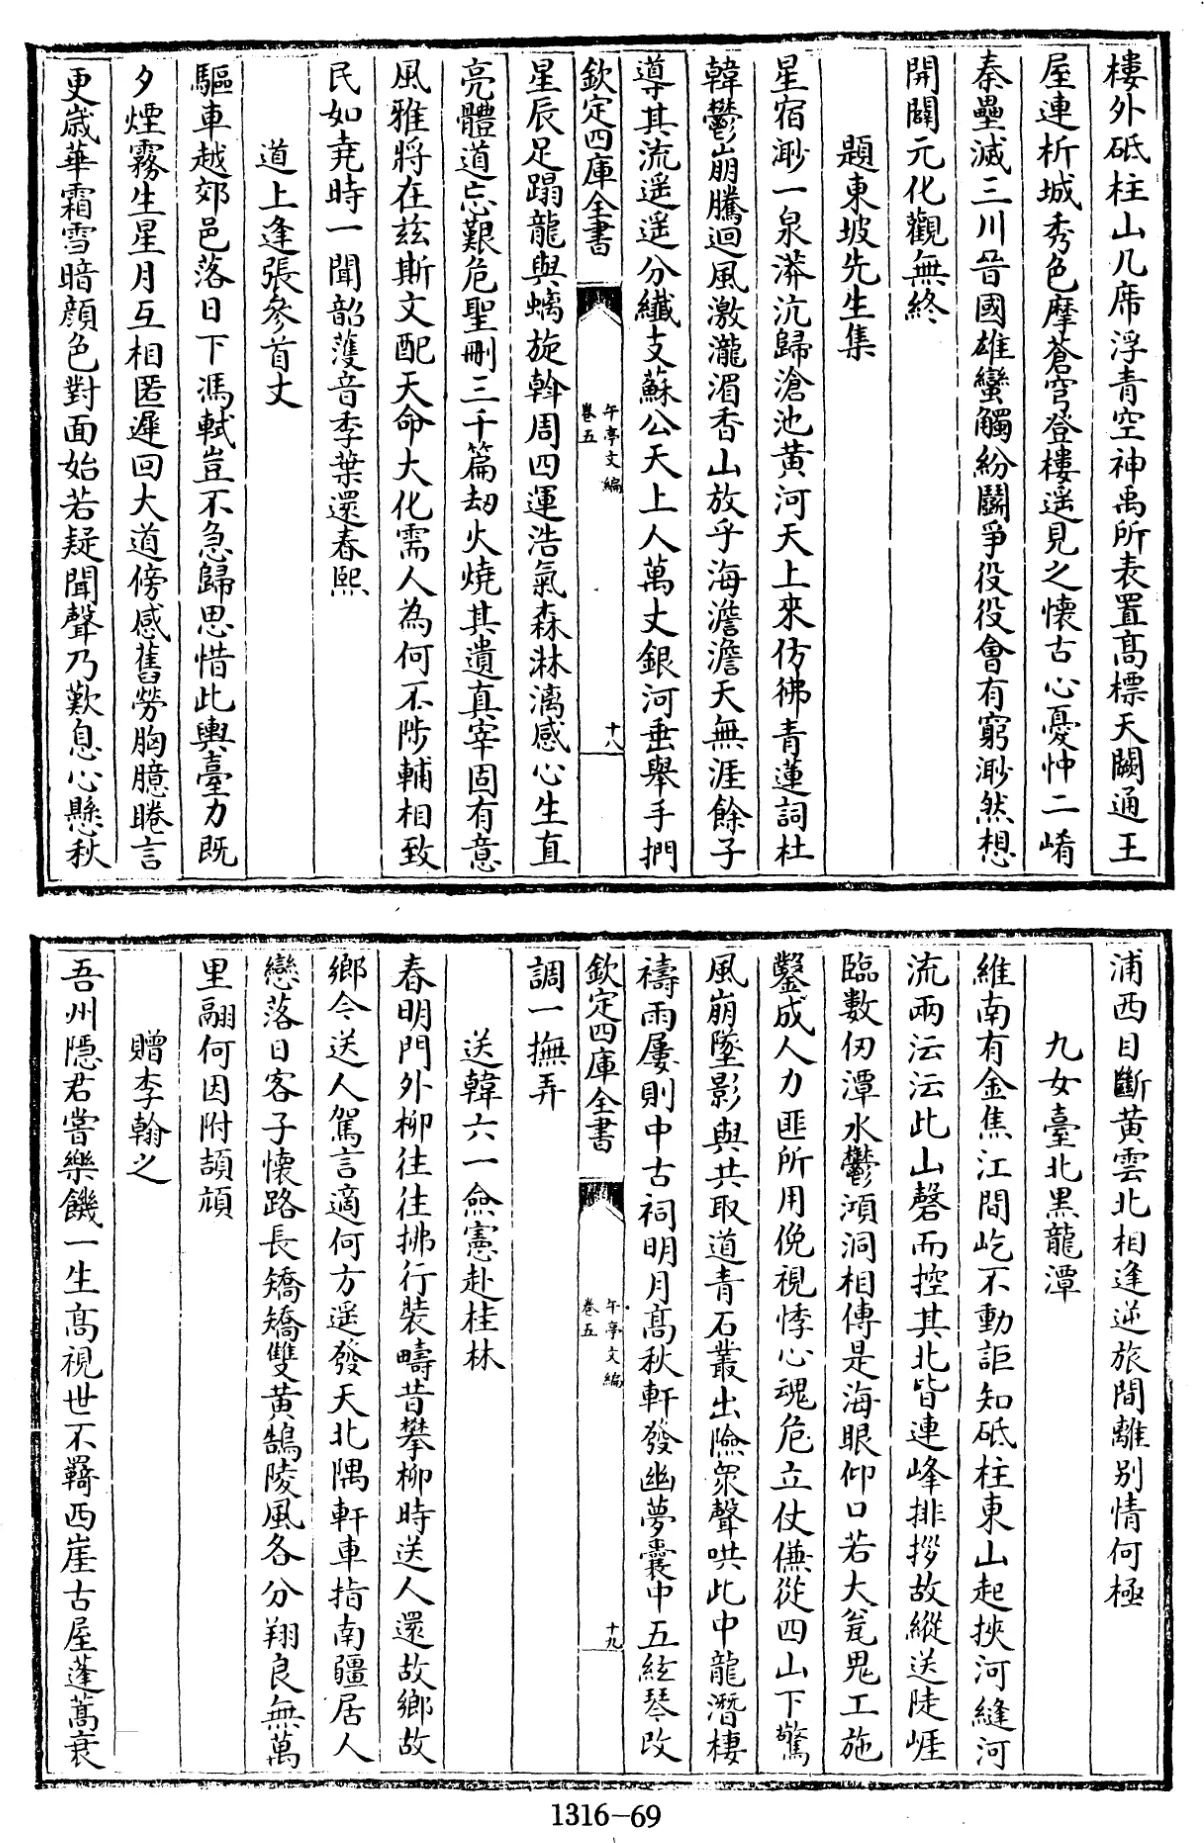 樓外砥柱山几席浮青空神禹所表置髙標天闕通王
屋連析城秀色摩蒼穹登樓遥見之懷古心憂忡二崤
秦壘滅三川晉國雄蠻觸紛鬭爭役役㑹有窮渺然想
開闢元化觀無終
題東坡先生集
星宿渺一泉漭沆歸滄池黄河天上來仿彿青蓮詞杜
韓鬱崩騰迴風激瀧湄香山放乎海澹澹天無涯餘子
導其流遥遥分纎支蘇公天上人萬丈銀河垂舉手捫
欽定四庫全書
午亭文編
卷五
十八
星辰足蹋龍與螭旋斡周四運浩氣森淋漓感心生直
亮體道忘艱危聖刪三千篇刼火燒其遺真宰固有意
風雅將在兹斯文配天命大化需人為何不陟輔相致
民如尭時一聞韶䕶音季葉還春熙
道上逢張參首丈
驅車越郊邑落日下馮軾豈不急歸思惜此輿臺力既
夕煙霧生星月互相匿遲回大道傍感舊勞胸臆睠言
更嵗華霜雪暗顔色對面始若疑聞聲乃歎息心懸秋
浦西目斷黄雲北相逢逆旅間離别情何極
九女臺北黒龍潭
維南有金焦江間屹不動詎知砥柱東山起挾河縫河
流兩沄沄此山磬而控其北皆連峰排拶故縱送陡崕
臨數仞潭水鬱澒洞相傳是海眼仰口若大瓮鬼工施
鑿成人力匪所用俛視悸心魂危立仗傔從四山下驚
風崩墜影與共取道青石叢出險衆聲哄此中龍潛棲
禱雨屢則中古祠明月髙秋軒發幽夢囊中五絃琴改
欽定四庫全書
午亭文編
卷五
十九
調一撫弄
送韓六一僉憲赴桂林
春明門外柳往往拂行裝疇昔攀柳時送人還故鄉故
鄉今送人駕言適何方遥發天北隅軒車指南疆居人
戀落日客子懷路長矯矯雙黄鵠陵風各分翔良無萬
里翮何因附頡頏
贈李翰之
吾州隱君嘗樂饑一生髙視世不羇西崖古屋蓬蒿衰
1316-69